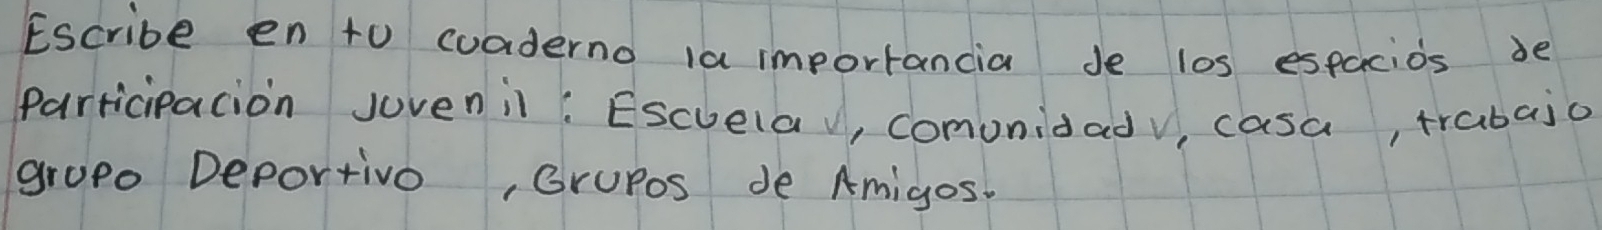 Escribe en tu cuaderno la importancia de los espacios de
Participación Juvenil: Escuela ✓, comunidad ✓, casa, trabajo
grupo Deportivo, Grupos de Amigos.